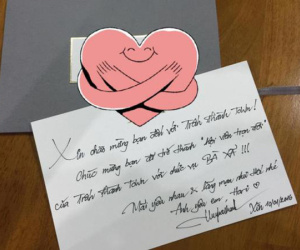 Xin chào mừng bạn đến với Trấn Thành Town!
Chúc mừng bạn đã trở thành "hội viên trọn đời"
của Trấn Thành Town với chức vụ BÀ XÃ !!!
Mãi yêu nhau & lãng mạn như thế nhé
Anh yêu em. Hari